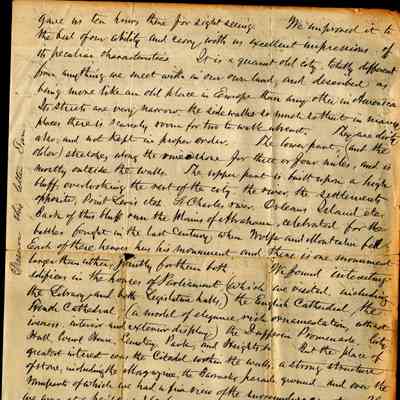 gave us ten hours there for sight seeing. We improved it to
the best of our ability and carry with us excellent impressions of
its peculiar characteristics It is a quaint old city totally different
from anything we meet with in our own land, and described as
being more like an old place in Europe than any other in America
Its streets are very narrow the sidewalks so much so that in many
places there is scarcely room for two to walk abreast. They are dirty
also, and not kept in proper order. The lower part, (and the
older) stretches along the shore for three or four miles, and is
mostly outside the walls. The upper part is built upon a high
bluff, overlooking the rest of the city the river, the settlements
opposite, Point Levis etc St Charles river Orleans Island etc.
Back of this bluff run the Plains of Abraham, celebrated for the
battles fought in the last century when Wolfe and Montcalm fell
Each of these heroes has his monument and there is one monument
larger than others, jointly for them both We found interesting
edifices in the houses of Parliament (which we visited, including
the Library, and both Legislative halls,) the English Cathedral, the
Cathedral (a model of elegance rich ornamentation,
interior and exterior display) the Dufferin Promenade, City
Hall, Court House, Park, and Heights etc But the place of
greatest interest was the Citadel within the walls, a strong structure
of stone, including the the parade ground, and over the
ramparts of which we had a fine view of the surroundings
Preserve this letter